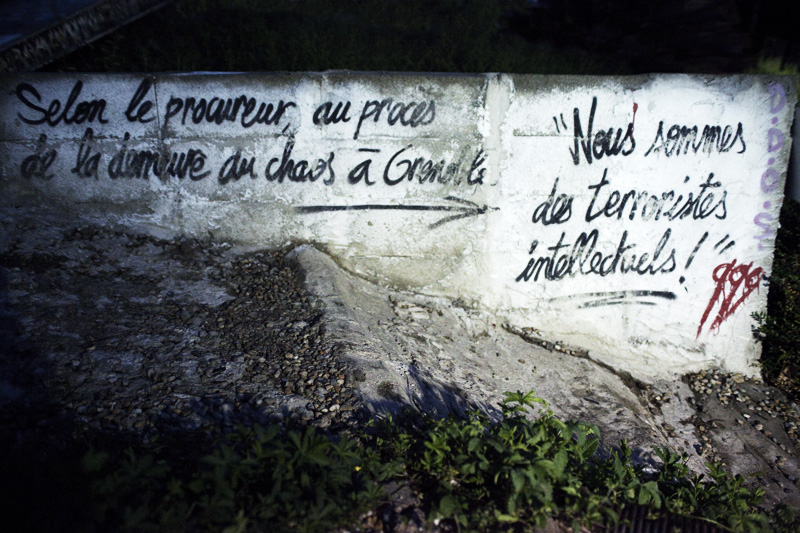 Selon le procureur, au procès
de la demeure du chaos à Grenoble
"Nous sommes
des terroristes
intellectuels!"
999
D.D.O.M